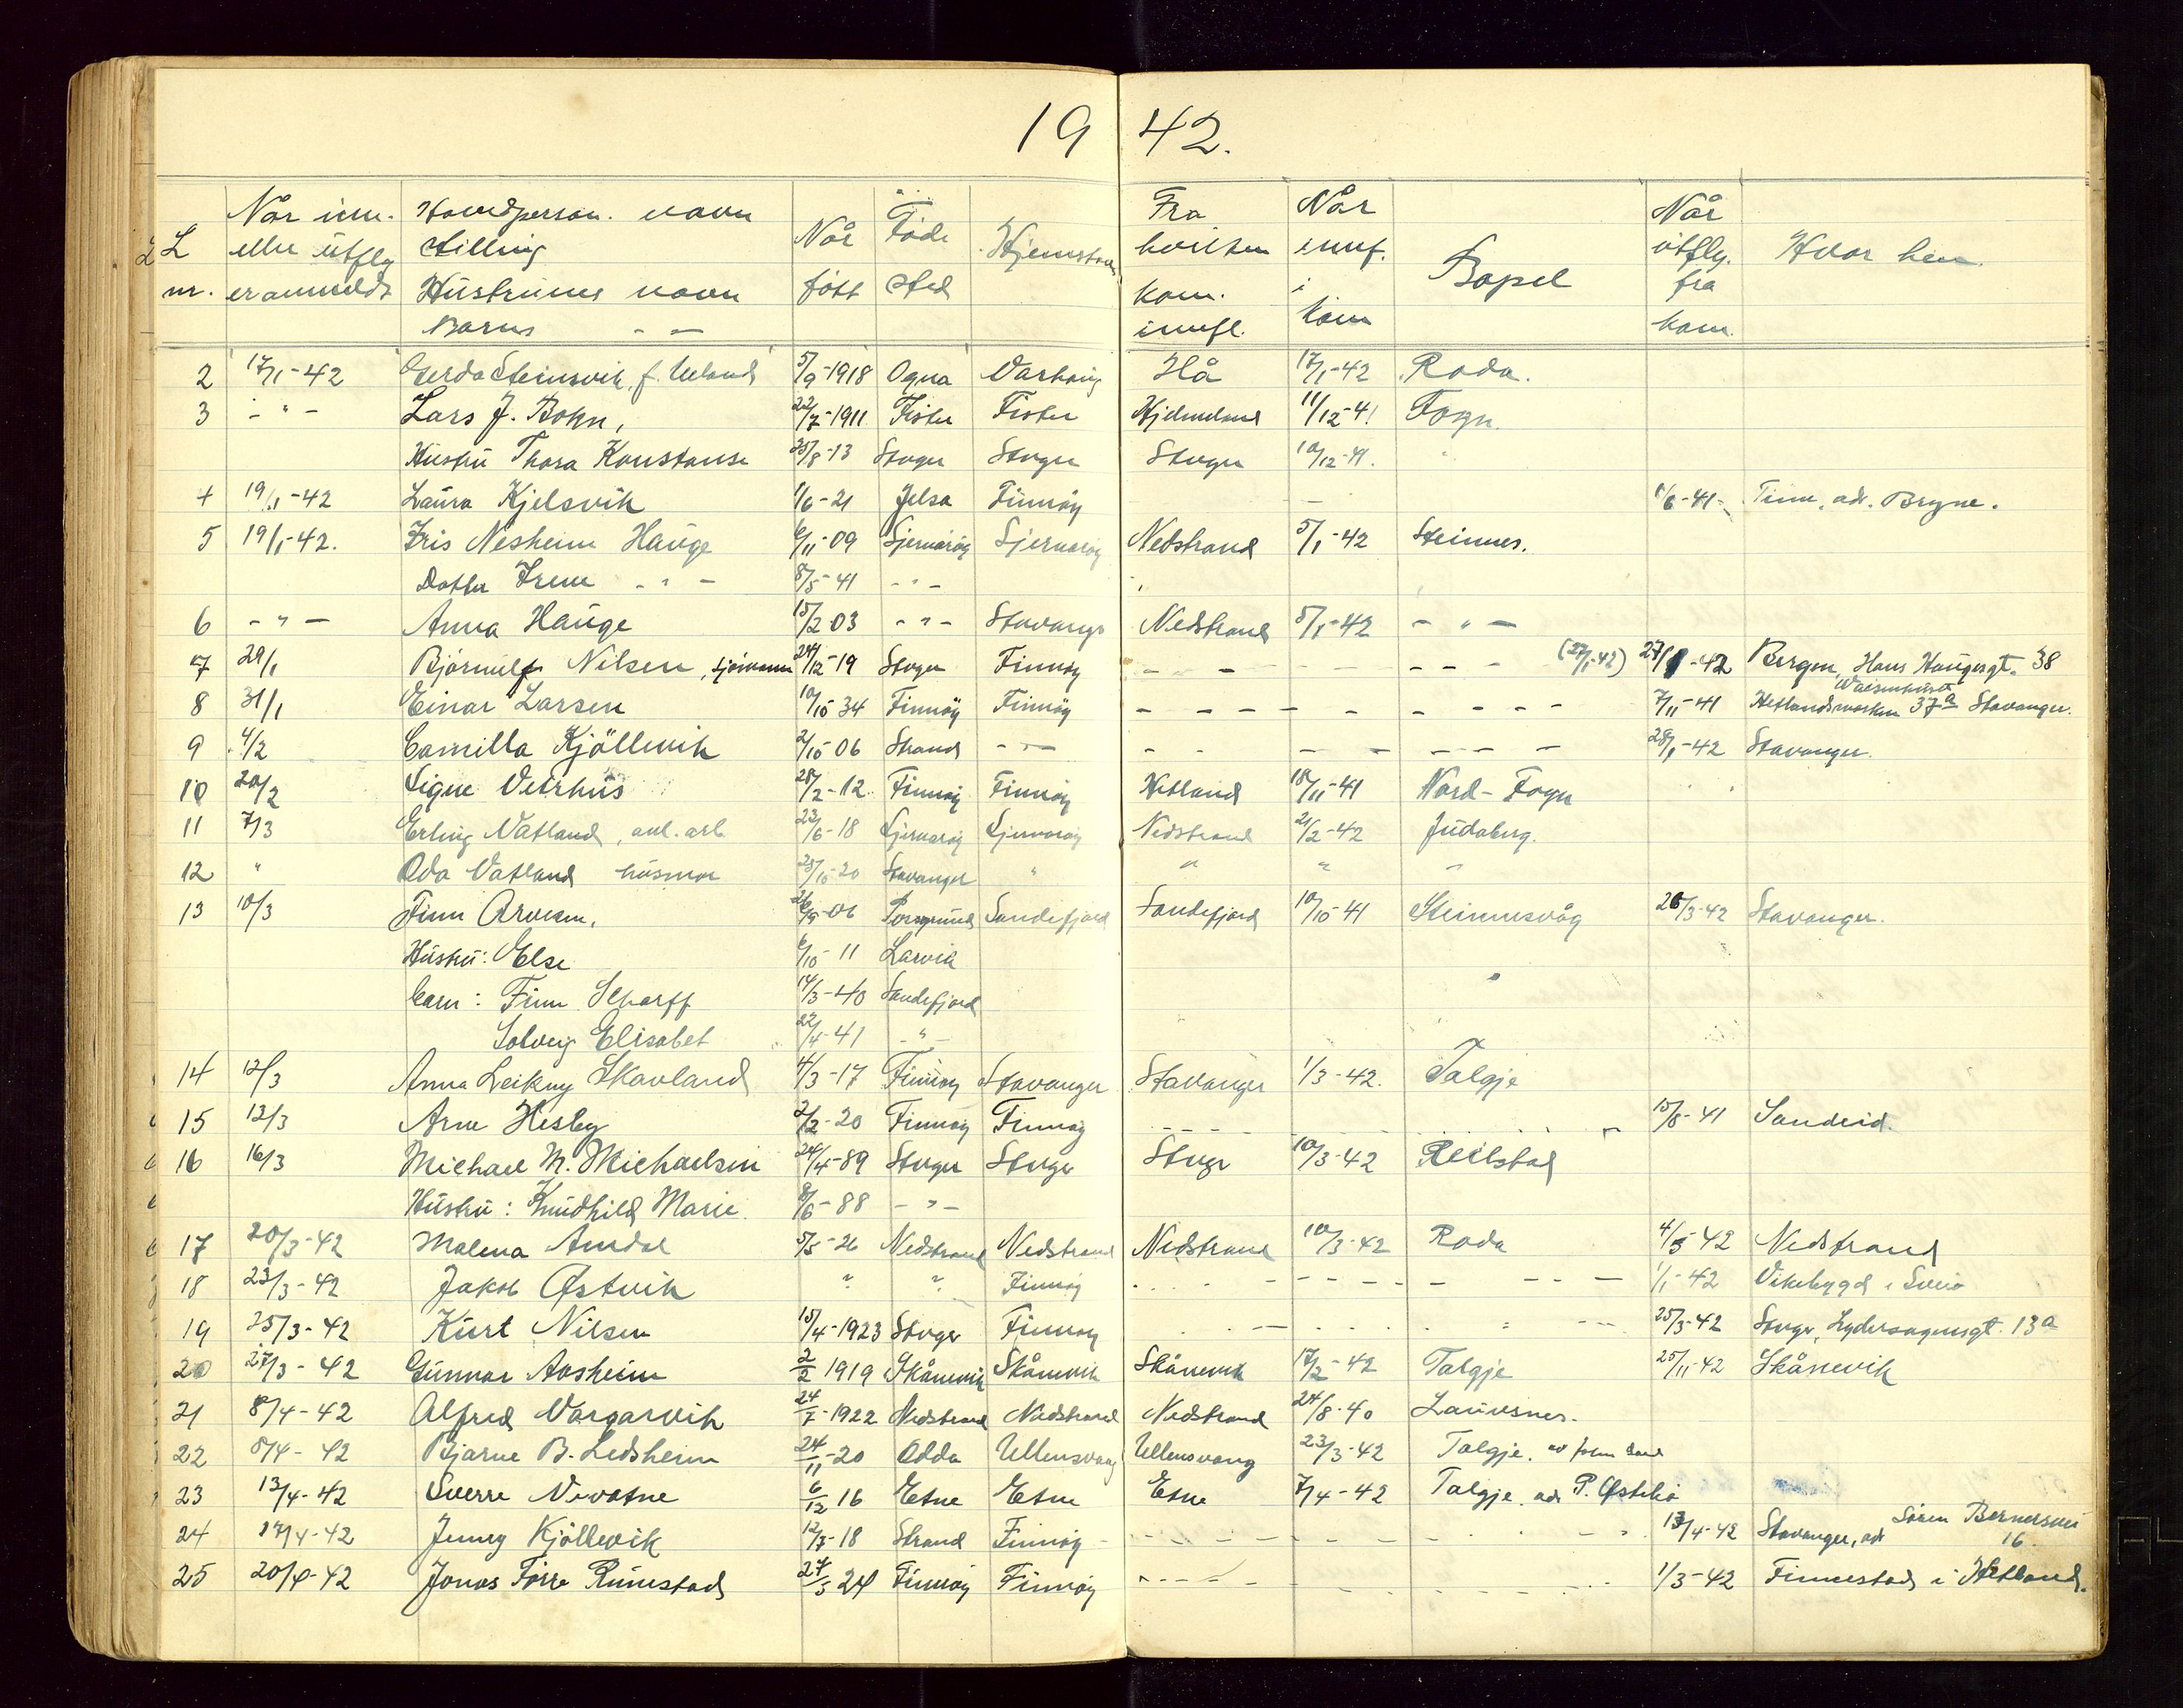 19 42.
L nr. | Når inn- eller utflg er anmeldt | Hovedperson. navn stilling Hustrunes navn Barns - - | Når født | Føde sted | Hjemstavn | Fra hvilken kom. innfl. | Når innf. i kom | Bopel | Når utflg. fra kom. | Hvor hen.
2 17/1-42 Gerda Steinsvik, f. Ueland 5/9-1918 Ogna Varhaug Hå 17/1-42 Roda.
3 - " - Lars J. Bokn, 22/7-1911 Fister Fister Hjelmeland 11/12-41 Fogn.
Hustru Thora Konstanse 25/8-13 Stvgr Stvgr Stvgr 10/12-41. "
4 19/1-42 Laura Kjelsvik 1/6-21 Jelsa Finnöy - 1/6-41 - Time, adr. Bryne.
5 19/1-42. Iris Nesheim Hauge 6/11-09 Sjernaröy Sjernaröy Nedstrand 5/1-42 Steinnes.
Datter Irene - " - 8/5-41 - " -
6 - " - Anna Hauge 15/2 03 - " - Stavanger Nedstrand 5/1-42 - " -
7 29/1 Bjørnulf Nilsen, sjömann 24/12-19 Stvgr Finnöy - - - - - - (27/1-42) 27/1-42 Bergen, Hans Haugesgt. 38
8 31/1 Einar Larsen 10/10 34 Finnöy Finnöy - - - - - - - - - 7/11-41 Hetlandsmarken 37a Stavanger.
Waisenhuset
9 4/2 Camilla Kjöllevik 2/10 06 Strand - " - - - - - - - - 28/1-42 Stavanger.
10 20/2 Signe Vetrhus 28/2-12 Finnöy Finnöy Hetland 18/11-41 Nord-Fogn
11 7/3 Erling Vatland, anl. arb 23/6-18 Sjernaröy Sjernaröy Nedstrand 21/2-42 Judaberg.
12 " Oda Vatland husmor 28/10-20 Stavanger " " " "
13 10/3 Finn Arvesen, 26/9-06 Porsgrund Sandefjord Sandefjord 10/10 41 Steinnesvåg 26/3-42 Stavanger.
Hustru: Else 6/10 11 Larvik
barn: Finn Scharff 14/3-40 Sandefjord "
Solveig Elisabet 22/4-41 - " -
14 12/3 Anna Leikny Skavland 4/3-17 Finnöy Stavanger Stavanger 1/3-42. Talgje
15 12/3 Arne Hesby 2/2-20 Finnöy Finnöy - - - - - - 15/8-41 Sandeid.
16 16/3 Michael N. Michaelsen 24/4-89 Stvgr Stvgr Stvgr 10/3-42 Reilstad
Hustru: Knudhild Marie 8/6-88 - " -
17 20/3-42 Malena Amdal 5/5-26 Nedstrand Nedstrand Nedstrand 10/3-42 Roda 4/5-42 Nedstrand
18 23/3-42 Jakob Østvik " " Finnöy - - - - - - - - - 1/1-42 Vikebygd i Sveio
19 25/3-42 Kurt Nilsen 15/4-1923 Stvgr Finnöy - - - - - 25/3-42 Stvgr, Lydersagensgt. 13a
20 27/3-42 Gunnar Aasheim 2/2 1919 Skånevik Skånevik Skånevik 17/2-42 Talgje 25/11-42 Skånevik
21 8/4-42 Alfred Vargarvik 24/7-1922 Nedstrand Nedstrand Nedstrand 24/8-40 Lauvsnes.
22 8/4-42 Bjarne B. Ledsheim 24/11-20 Odda Ullensvang Ullensvang 23/3-42 Talgje.
23 13/4-42 Sverre Nevatne 6/12 16 Etne Etne Etne 7/4-42 Talgje. adr P. Østebø
24 17/4-42 Jenny Kjöllevik 12/7-18 Strand Finnöy - - - - - - - - 13/4-42 Stavanger, adr Sören Bernersvei 16.
25 20/4-42 Jonas Törre Rimestad 24/5 24 Finnöy Finnöy - - - - - - - - 1/3-42 Finnestad i Hetland.